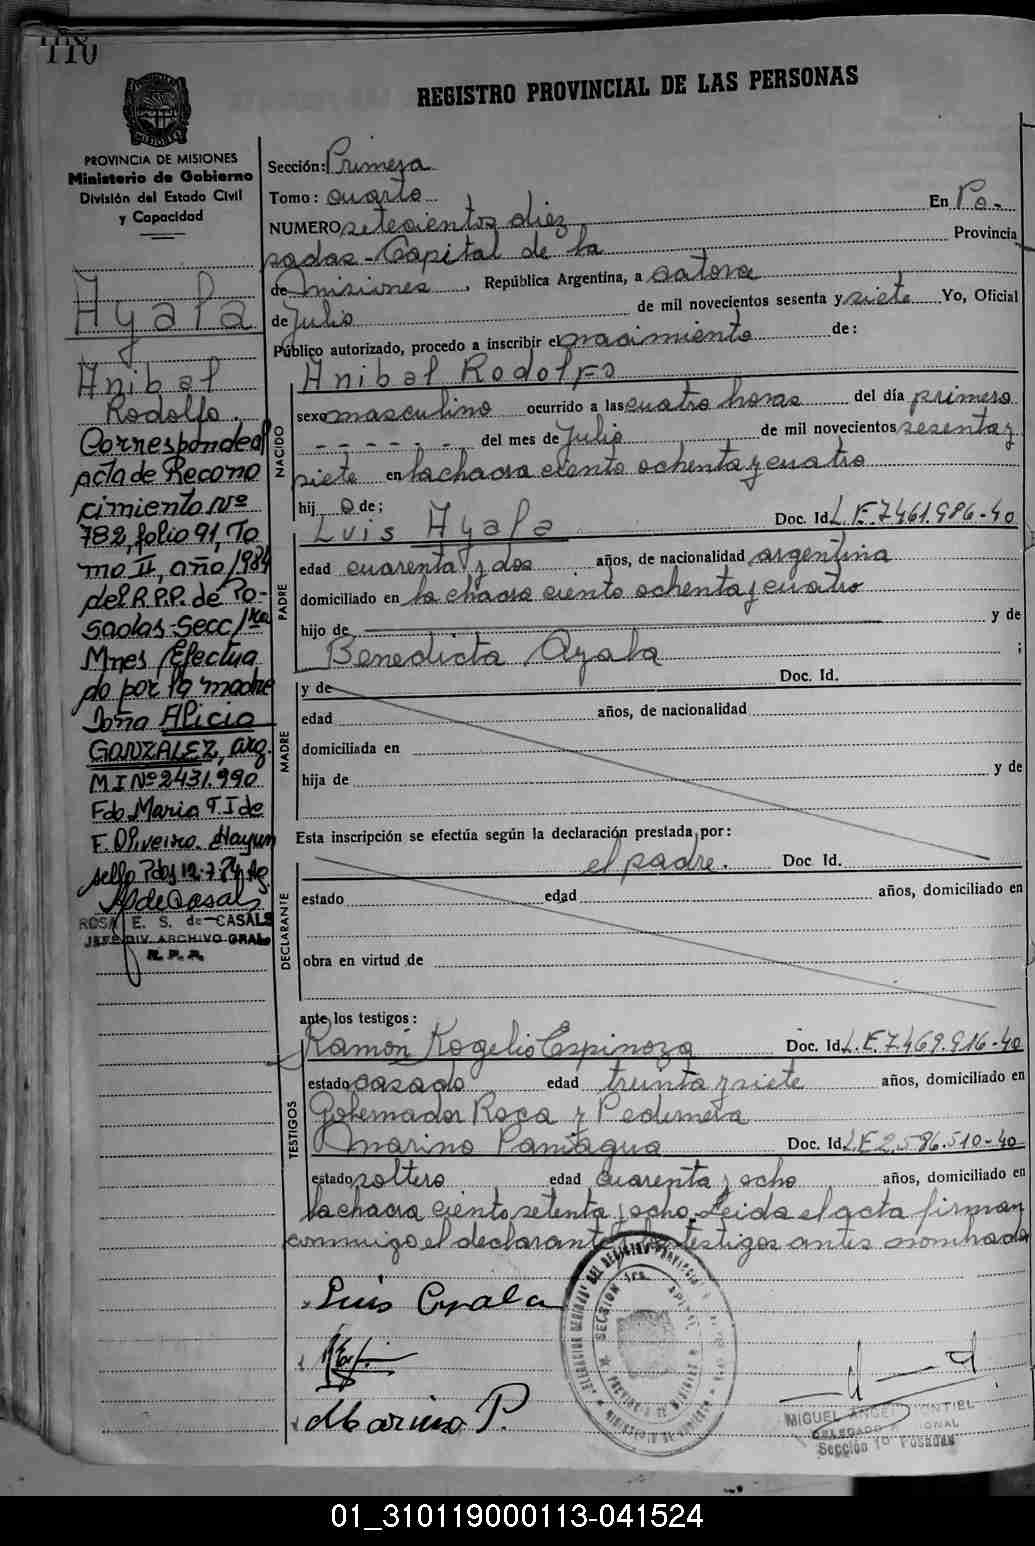 110
REGISTRO PROVINCIAL DE LAS PERSONAS
PROVINCIA DE MISIONES
Ministerio de Gobierno
División del Estado Civil
y Capacidad
Ayala
Anibal
Rodolfo.
Corresponde al
acta de Recono
cimiento Nº
782, folio 91, To
mo II, año 1984
del R.P.P. de Po-
sadas - Secc 1ra
Mnes Efectua
do por la madre
Doña Alicia
GONZALEZ, arg.
M I Nº 2431.990
Fdo. Maria T. I de
F. Oliveira. Hay un
sello Pdas 12.7.84
ROSA E. S. de CASALS
JEFE DIV. ARCHIVO GRAL.
R. P. P.
Sección: Primera
Tomo: cuarto
NUMERO setecientos diez En Po-
sadas - Capital de la Provincia
de Misiones, República Argentina, a catorce
de Julio de mil novecientos sesenta y siete Yo, Oficial
Público autorizado, procedo a inscribir el nacimiento de:
Anibal Rodolfo
NACIDO
sexo masculino ocurrido a las cuatro horas del día primero
- - - - - - del mes de Julio de mil novecientos sesenta y
siete en la chacra ciento ochenta y cuatro
hij o de:
Luis Ayala Doc. Id. L.E. 7.461.986-40
PADRE
edad cuarenta y dos años, de nacionalidad argentina
domiciliado en la chacra ciento ochenta y cuatro
hijo de y de
Benedicta Ayala ;
y de Doc. Id.
MADRE
edad años, de nacionalidad
domiciliada en
hija de y de
Esta inscripción se efectúa según la declaración prestada por:
el padre. Doc. Id.
DECLARANTE
estado edad años, domiciliado en
obra en virtud de
ante los testigos:
Ramón Rogelio Espinoza Doc. Id. L.E. 7.469.916-40
TESTIGOS
estado casado edad treinta y siete años, domiciliado en
Gobernador Roca y Pedernera
Marino Paniagua Doc. Id. L.E. 2.586.510-40
estado soltero edad cuarenta y ocho años, domiciliado en
la chacra ciento setenta y ocho. Leida el acta firman
conmigo el declarante y los testigos antes nombrado
Luis Ayala
Marino P.
SECCION 1ra. CAPITAL
MIGUEL ANGEL MONTIEL
DELEGADO
Sección 1º Posadas
01_310119000113-041524